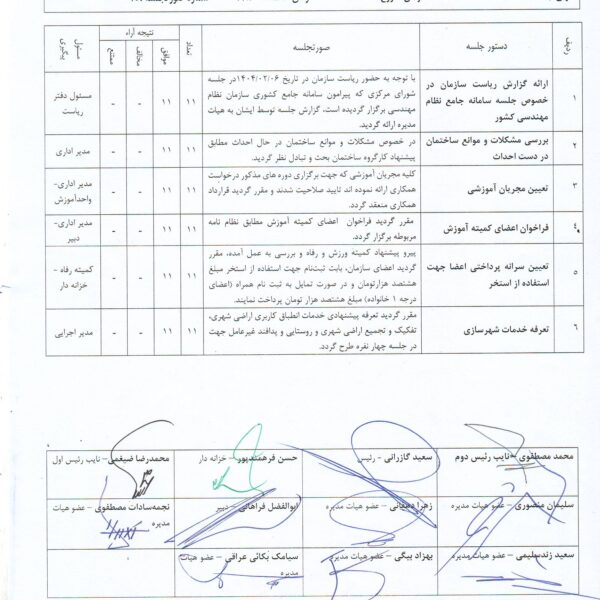 ردیف
دستور جلسه
صورتجلسه
تعداد
نتیجه آراء
موافق
مخالف
ممتنع
مسئول
پیگیری
۱
ارائه گزارش ریاست سازمان در
خصوص جلسه سامانه جامع نظام
مهندسی کشور
با توجه به حضور ریاست سازمان در تاریخ ۱۴۰۴/۰۲/۰۶در جلسه
شورای مرکزی که پیرامون سامانه جامع کشوری سازمان نظام
مهندسی برگزار گردیده است، گزارش جلسه توسط ایشان به هیات
مدیره ارائه گردید.
۱۱
۱۱
-
-
مسئول دفتر
ریاست
۲
بررسی مشکلات و موانع ساختمان
در دست احداث
در خصوص مشکلات و موانع ساختمان در حال احداث مطابق
پیشنهاد کارگروه ساختمان بحث و تبادل نظر گردید.
۱۱
۱۱
-
-
مدیر اداری
۳
تعیین مجریان آموزشی
کلیه مجریان آموزشی که جهت برگزاری دوره های مذکور درخواست
همکاری ارائه نموده اند تایید صلاحیت شدند و مقرر گردید قرارداد
همکاری منعقد گردد.
۱۱
۱۱
-
-
مدیر اداری-
واحدآموزش
۴
فراخوان اعضای کمیته آموزش
مقرر گردید فراخوان اعضای کمیته آموزش مطابق نظام نامه
مربوطه برگزار گردد.
۱۱
۱۱
-
-
مدیر اداری-
دبیر
۵
تعیین سرانه پرداختی اعضا جهت
استفاده از استخر
پیرو پیشنهاد کمیته ورزش و رفاه و بررسی به عمل آمده، مقرر
گردید اعضای سازمان، بابت ثبت‌نام جهت استفاده از استخر مبلغ
هشتصد هزارتومان و در صورت تمایل به ثبت نام همراه (اعضای
درجه ۱ خانواده) مبلغ هشتصد هزار تومان پرداخت نمایند.
۱۱
۱۱
-
-
کمیته رفاه -
خزانه دار
۶
تعرفه خدمات شهرسازی
مقرر گردید تعرفه پیشنهادی خدمات انطباق کاربری اراضی شهری،
تفکیک و تجمیع اراضی شهری و روستایی و پدافند غیرعامل جهت
در جلسه چهار نفره طرح گردد.
۱۱
۱۱
-
-
مدیر اجرایی
محمد مصطفوی – نایب رئیس دوم
سعید گازرانی - رئیس
حسن فرهمندپور – خزانه دار
محمدرضا ضیغمی – نایب رئیس اول
سلیمان منصوری – عضو هیات مدیره
زهرا دهقانی – عضو هیات مدیره
ابوالفضل فراهانی – دبیر
نجمه‌سادات مصطفوی – عضو هیات
مدیره
سعید زندسلیمی – عضو هیات مدیره
بهزاد بیگی – عضو هیات مدیره
سیامک بکائی عراقی – عضو هیات
مدیره